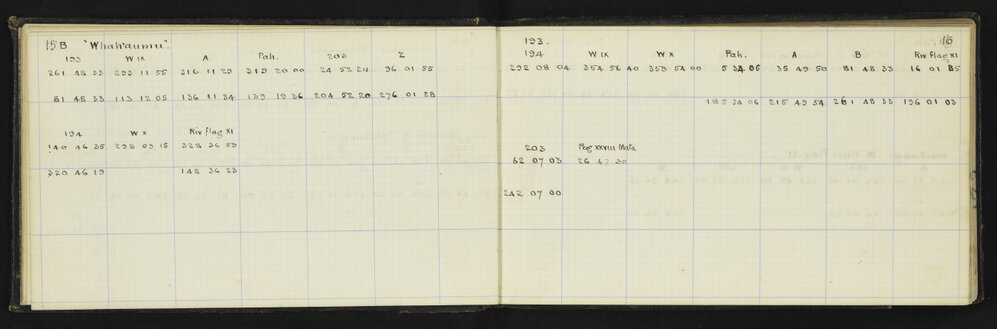 15 B "Whakaumu".
193 W IX A Pah. 203 Z
261 48 33 293 11 55 316 11 29 319 20 00 24 52 24 96 01 55
81 48 33 113 12 05 136 11 34 139 19 36 204 52 20 276 01 28
194 W X Riv flag XI
140 46 35 298 09 15 328 36 59
320 46 19 148 36 23
193. 16
194 W IX W X Pah. A B Riv flag XI
292 08 04 354 56 40 359 54 00 5 34 05 35 49 50 81 48 33 16 01 25
185 34 06 215 49 54 261 48 33 196 01 03
203 Peg XXVIII Mata
62 07 03 26 47 30
242 07 00